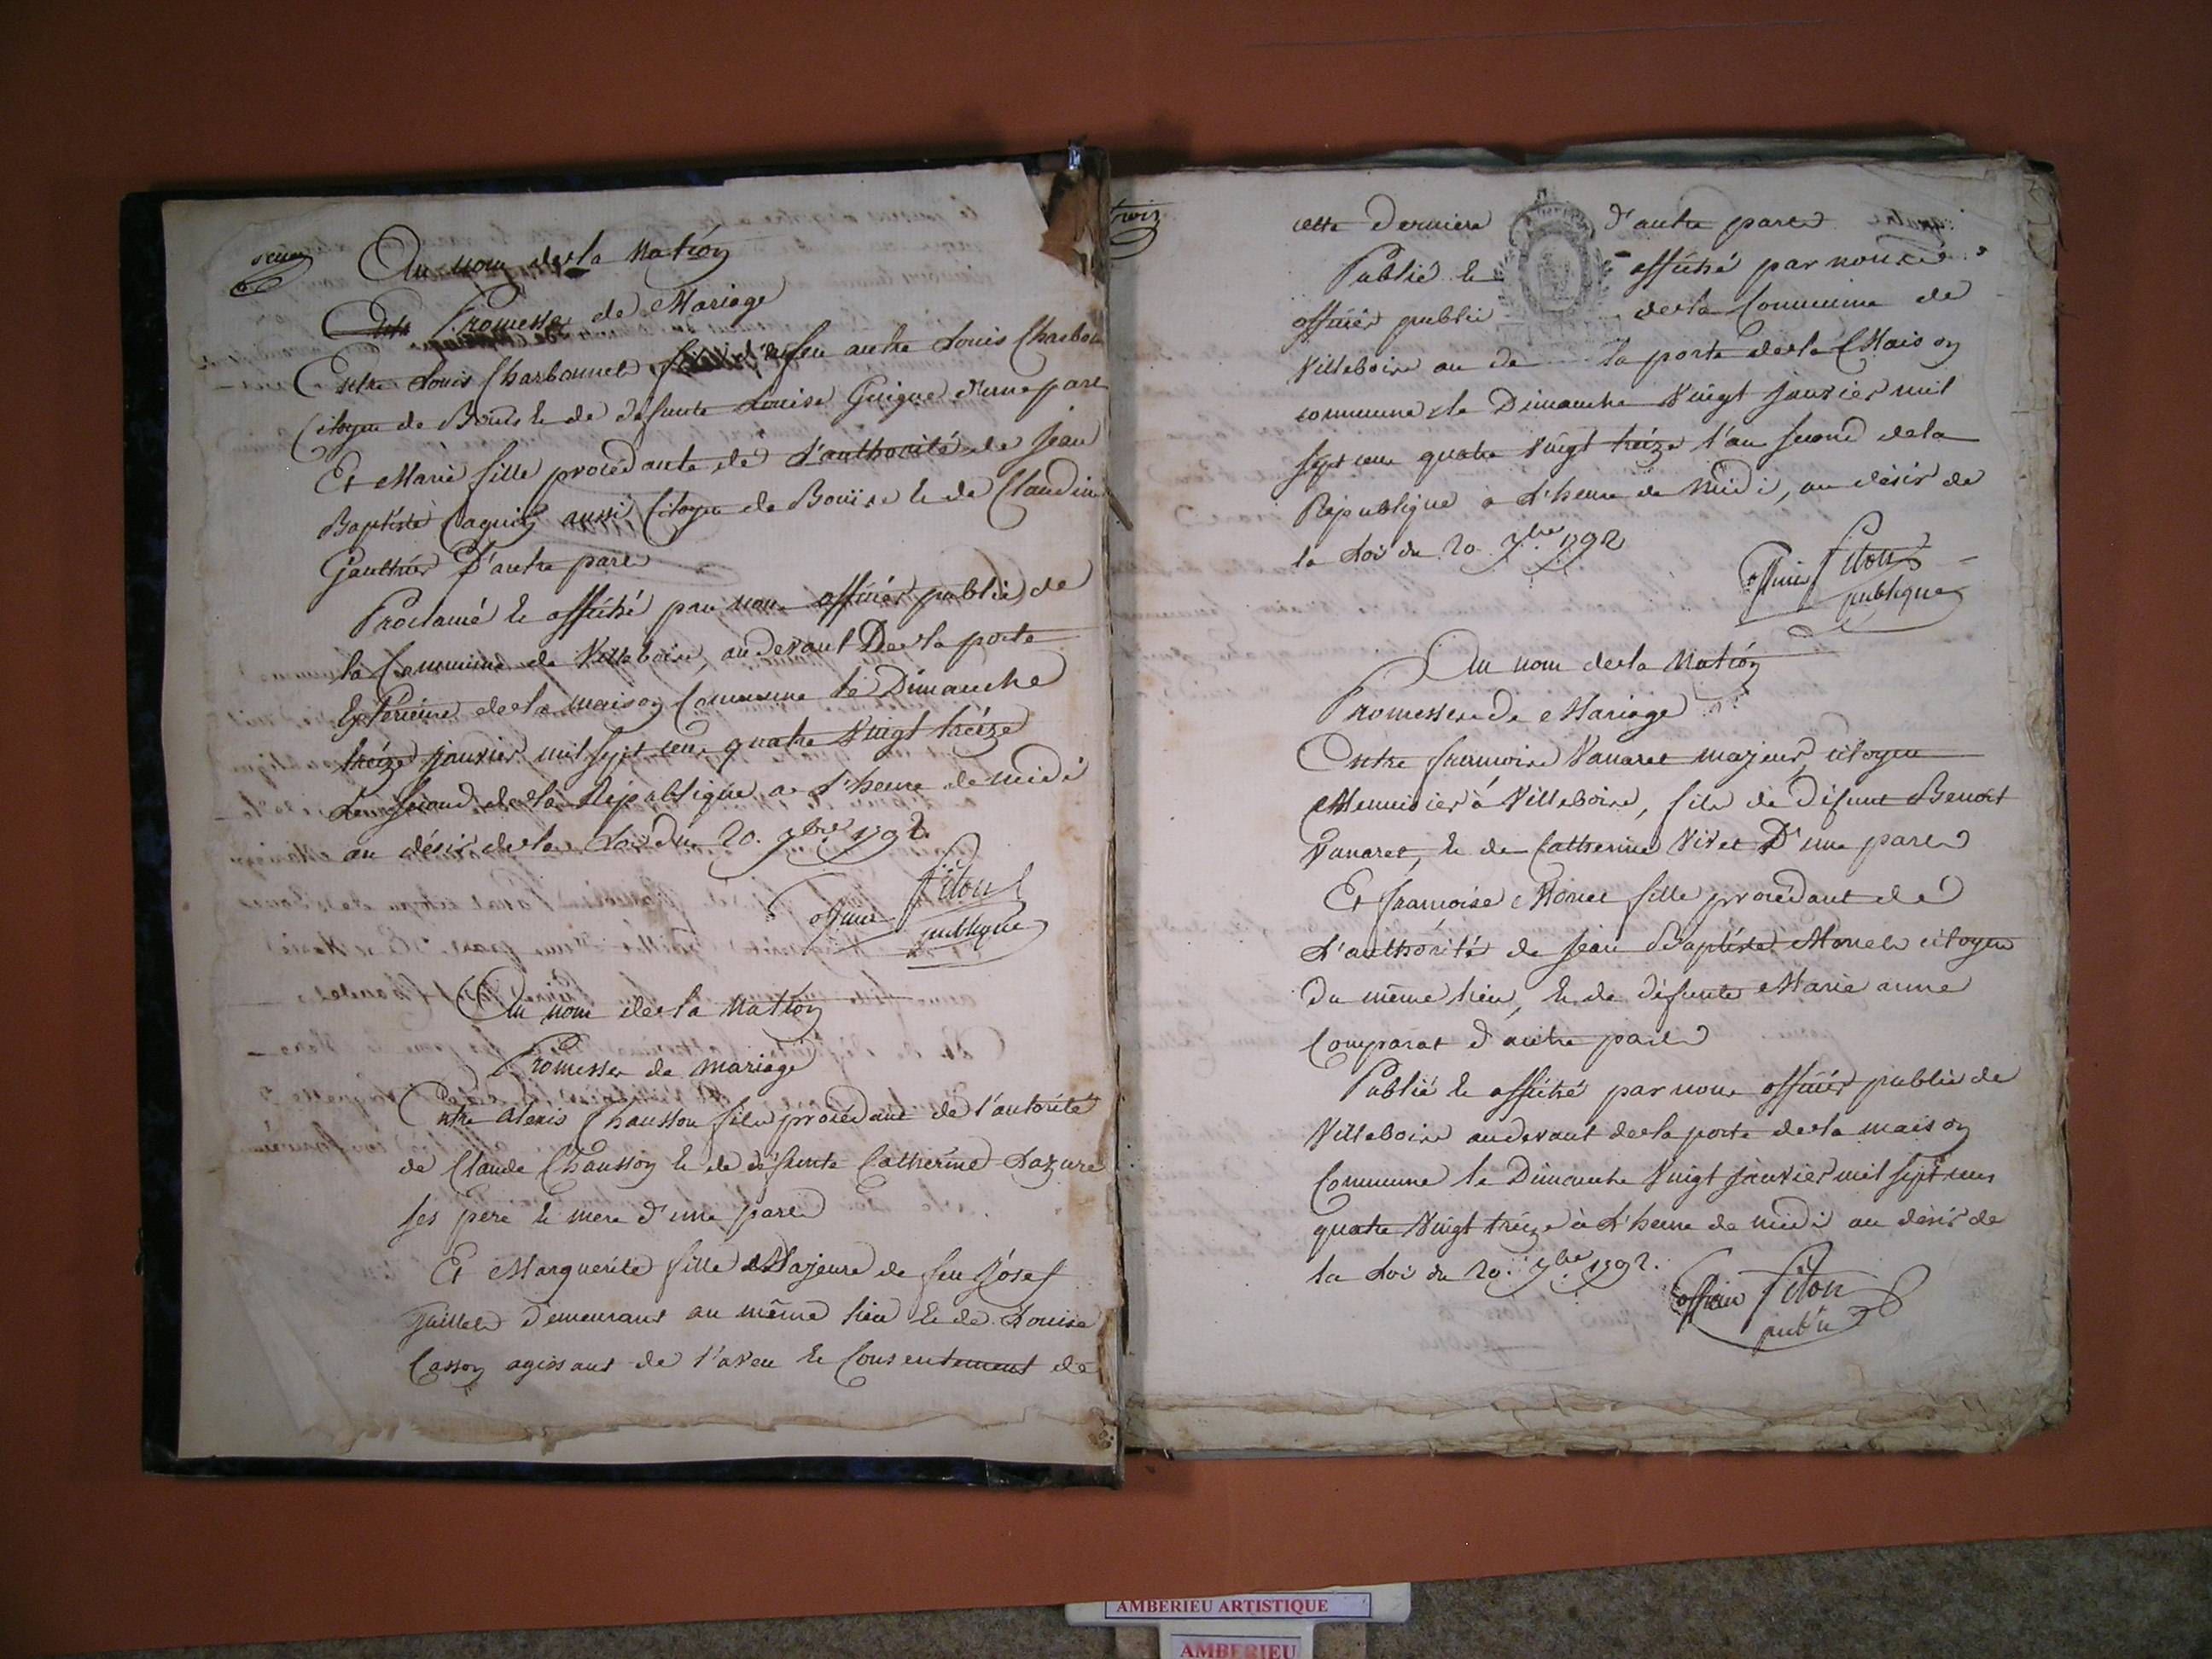 Au nom de la Nation
Promesse de Mariage
Entre Louis Charbonnet feu autre Louis Charbon
Citoyen de Bouis & de defunte Louise Guigue d'une part
Et Marie fille procédante de l'authorité de Jean
Baptiste aussi Citoyen de Bouise & de Claudine
Gauthier d'autre part
Proclamé & affiché par nous officier public de
la Commune de Villeboise, au devant De la porte
Extérieure de la maison Commune le Dimanche
treize janvier mil sept cens quatre Vingt treize
second de la République a l'heure de midi
au désir de la Loi du 20. 7bre 1792.
officier fiton
publique
Au nom de la Nation
Promesse de mariage
Entre Alexis Chausson fils procédant de l'autorité
de Claude Chausson & de défunte Catherine Lazare
ses père & mere d'une part
Et Marguerite fille Majeure de feu Jósef
demeurant au même lieu & de Louise
Casson agissant de l'aveu & Consentement de
cette derniere d'autre part
Publié & affiché par nous
officier public de la Commune de
Villeboise au de la porte de la Maison
commune le Dimanche Vingt janvier mil
sept cens quatre Vingt treize l'an second de la
République a l'heure de midi, au désir de
la Loi du 20 7bre 1792
officier fiton
publique
Au nom de la Nation
Promesse de Mariage
Entre francoise Vanaret majeur, citoyen
Menuisier à Villeboise, fils de défunt Benoit
Vanaret, & de Catherine Vivet D'une part
Et francoise Morel fille procédant de
l'authorité de Jean Baptiste Morel citoyen
du même lieu, & de défunte Marie anne
Comparat d'autre part
Publié & affiché par nous officier public de
Villeboise au devant de la porte de la maison
Commune le Dimanche Vingt janvier mil sept cens
quatre Vingt treize à l'heure de midi au désir de
la Loi du 20. 7bre 1792.
officier fiton
public
AMBERIEU ARTISTIQUE
AMBERIEU